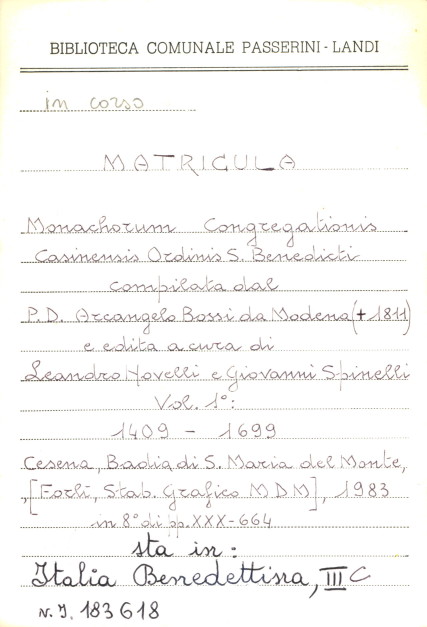 BIBLIOTECA COMUNALE PASSERINI - LANDI
in corso
MATRICULA
Monachorum Congregationis
Casinensis Ordinis S. Benedicti
compilata dal
P.D. Arcangelo Bossi da Modena (+ 1811)
e edita a cura di
Leandro Novelli e Giovanni Spinelli
Vol. 1°:
1409 - 1699
Cesena, Badia di S. Maria del Monte,
[Forlì, Stab. Grafico MDM], 1983
in 8° di pp. XXX-664
sta in:
Italia Benedettina, III C
N. I. 183618